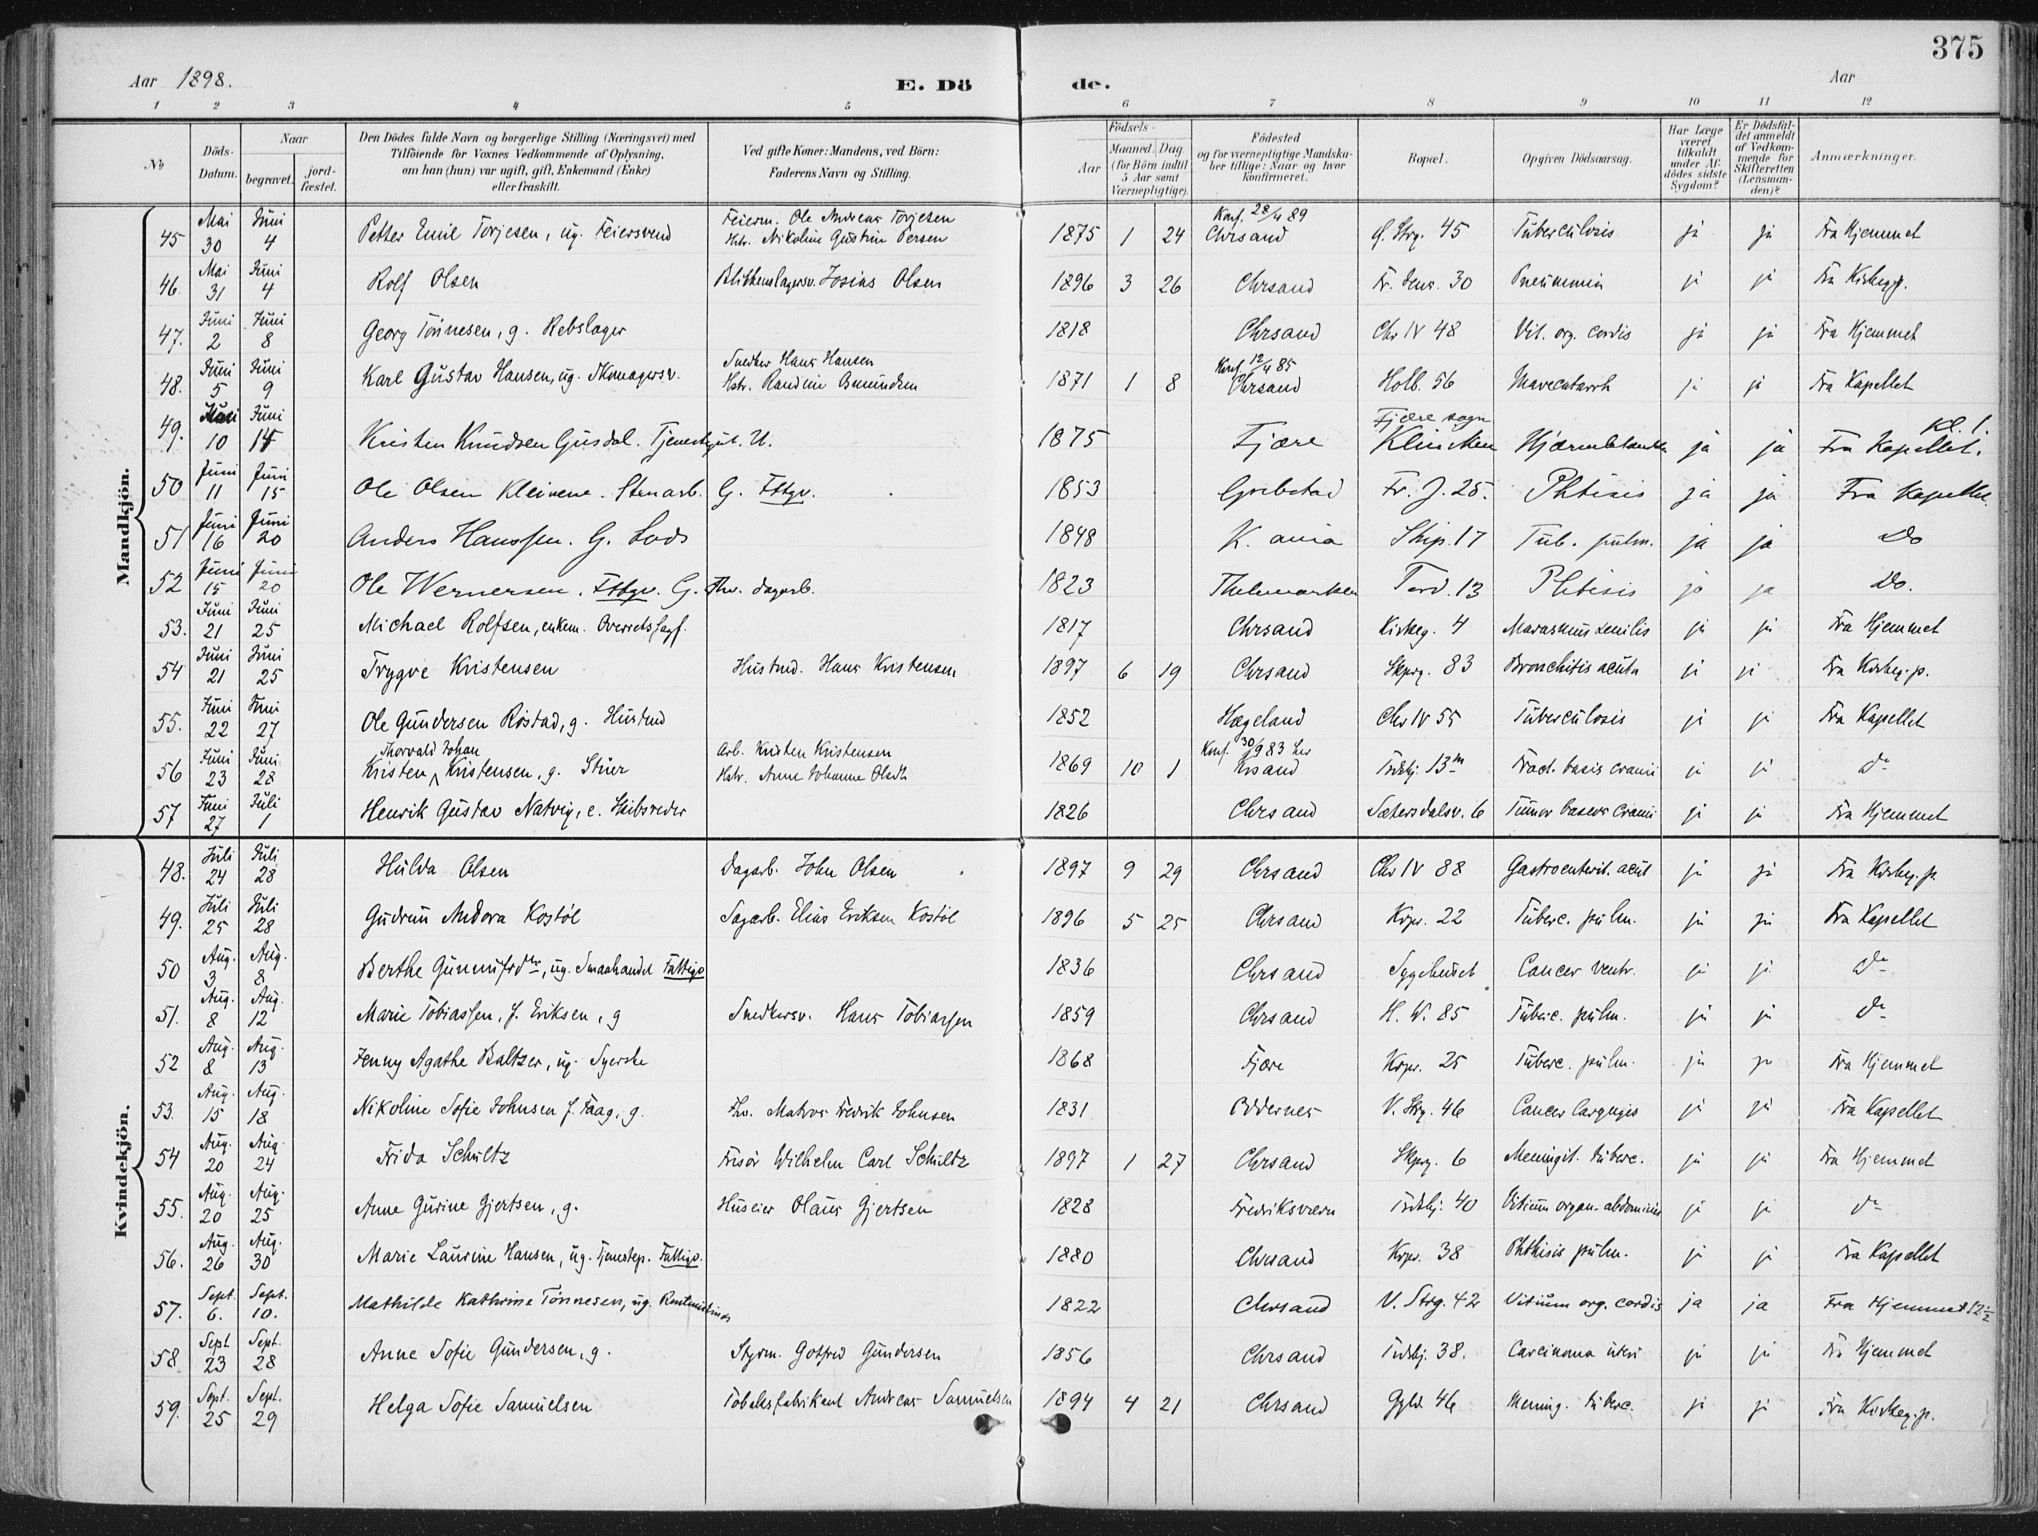 375
Aar 1898. E. Dö de. Aar
1 2 3 4 5 6 7 8 9 10 11 12
No Döds-Datum. Naar begravet. jordfæstet. Den Dödes fulde Navn og borgerlige Stilling (Næringsvei) med Tilföiende for Voxnes Vedkommende af Oplysning, om han (hun) var ugift, gift, Enkemand (Enke) eller fraskilt. Ved gifte Koner: Mandens, ved Börn: Faderens Navn og Stilling. Födsels- Aar Maaned. Dag. (for Börn indtil 5 Aar samt Værnepligtige). Födested og for værnepligtige Mandskaber tillige: Naar og hvor konfirmeret. Bopæl. Opgiven Dödsaarsag. Har Læge været tilkaldt under Afdödes sidste Sygdom? Er Dödsfaldet anmeldt af Vedkommende for Skifteretten (Lensmanden)? Anmærkninger.
Mandkjön.
45 Mai 30 Juni 4 Petter Emil Torjesen, ug. Feiersvend Feierm. Ole Andreas Torjesen Hstr. Nikoline Gustine Persen 1875 1 24 Konf. 28/4 89 Chrsand Ø. Strg. 45 Tuberculosis ja ja Fra Hjemmet
46 Mai 31 Juni 4 Rolf Olsen Blikkenslagersv. Josias Olsen 1896 3 26 Chrsand Fr. 30 Pneumonia ja ja Fra Kirkeg.p.
47. Juni 2 Juni 8 Georg Tönnesen, g. Rebslager 1818 Chrsand Chr IV 48 Vit. org. cordis ja ja Fra Hjemmet
48. Juni 5 Juni 9 Karl Gustav Hansen, ug. Skomagersv. Snedker Hans Hansen Hstr. Randine Asmundsen 1871 1 8 Konf. 12/4 85 Chrsand Holb. 56 Mavecatarrh ja ja Fra Kapellet
49. Juni 10 Juni 15 Kristen Knudsen Gusdal. Tjenestgut. U. 1875 Fjære Fjære sogn Hjernebetændelse ja ja Fra Kapellet. Kl. 1.
50 Juni 11 Juni 15 Ole Olsen Kleivene. Stenarb. G. Fttgv. 1853 Grebstad Fr. J. 25. Phtisis ja ja Fra Kapellet
51 Juni 16 Juni 20 Anders Hanssen. G. Lods 1848 K. ania Skip. 17 Tub. pulm. ja ja Do
52 Juni 15 Juni 20 Ole Wernersen. Fttgv. G. Fhv. dagarb. 1823 Thelemarken Tord. 13 Phtisis ja ja Do.
53. Juni 21 Juni 25 Michael Rolfsen, enkem. Overretssagf. 1817 Chrsand Kirkeg. 4 Marasmus senilis ja ja Fra Hjemmet
54 Juni 21 Juni 25 Trygve Kristensen Hustmd. Hans Kristensen 1897 6 19 Chrsand Skprg. 83 Bronchitis acuta ja ja Fra Kirkeg.p.
55. Juni 22 Juni 27 Ole Gundersen Röstad, g. Hustmd 1852 Hægeland Chr IV 55 Tuberculosis ja ja Fra Kapellet
56 Juni 23 Juni 28 Kristen Thorvald Johan Kristensen, g. Stuer Arb. Kristen Kristensen Hstr. Anne Johanne Olsdtr 1869 10 1 Konf. 30/9 83 her Krsand Tordskj. 13 Fract. basis cranii ja ja do
57 Juni 27 Juli 1 Henrik Gustav Natvig, e. Skibsreder 1826 Chrsand Sætersdalsv. 6 Tumor baseos cranii ja ja Fra Hjemmet
Kvindekjön.
48. Juli 24 Juli 28 Hulda Olsen Dagarb. John Olsen 1897 9 29 Chrsand Chr IV 88 Gastroenterit. acut ja ja Fra Kirkeg.p.
49. Juli 25 Juli 28 Gudrun Andora Kostöl Sagarb. Elias Eriksen Kostöl 1896 5 25 Chrsand Krpr. 22 Tuberc. pulm. ja ja Fra Kapellet
50 Aug. 3 Aug. 8 Berthe ug. Smaahandel Fattigv 1836 Chrsand Sygehuset Cancer ventr. ja ja do
51. Aug. 8 Aug. 12 Marie Tobiassen, f. Eriksen, g Snedkersv. Hans Tobiassen 1859 Chrsand H. W. 85 Tuberc. pulm. ja ja do
52 Aug. 8 Aug. 13 Jenny Agathe Baltzer, ug. Syerske 1868 Fjære Krpr. 25 Tuberc. pulm. ja ja Fra Hjemmet
53. Aug. 15 Aug. 18 Nikoline Sofie Johnsen f. Faag, g. Fhv. Matros Fredrik Johnsen 1831 Oddernes V. Strg. 46 Cancer laryngis ja ja Fra Kapellet
54 Aug. 20 Aug 24 Frida Schultz Frisör Wilhelm Carl Schultz 1897 1 27 Chrsand Skprg. 6 Meningit. tuberc. ja ja Fra Hjemmet
55. Aug 20 Aug. 25 Anne Gurine Gjertsen, g. Huseier Olaus Gjertsen 1828 Fredriksværn Tordskj. 40 Vitium organ. abdominis ja ja do
56. Aug. 26 Aug. 30 Marie Laurine Hansen, ug. Tjenestep. Fattigv. 1880 Chrsand Krpr. 38 Phthisis pulm. ja ja Fra Kapellet
57. Sept. 6. Sept. 10. Mathilde Kathrine Tönnesen, ug. 1822 Chrsand V. Strg. 42 Vitium org. cordis ja ja Fra Hjemmet 12½
58 Sept 23 Sept. 28 Anne Sofie Gundersen, g. Styrm. Gotfred Gundersen 1856 Chrsand Tordskj. 38. Carcinoma uteri ja ja Fra Hjemmet
59. Sept. 25 Sept. 29 Helga Sofie Samuelsen Tobaksfabrikant Andreas Samuelsen 1894 4 21 Chrsand Gyld. 46 Mening. tuberc. ja ja Fra Kirkeg.p.